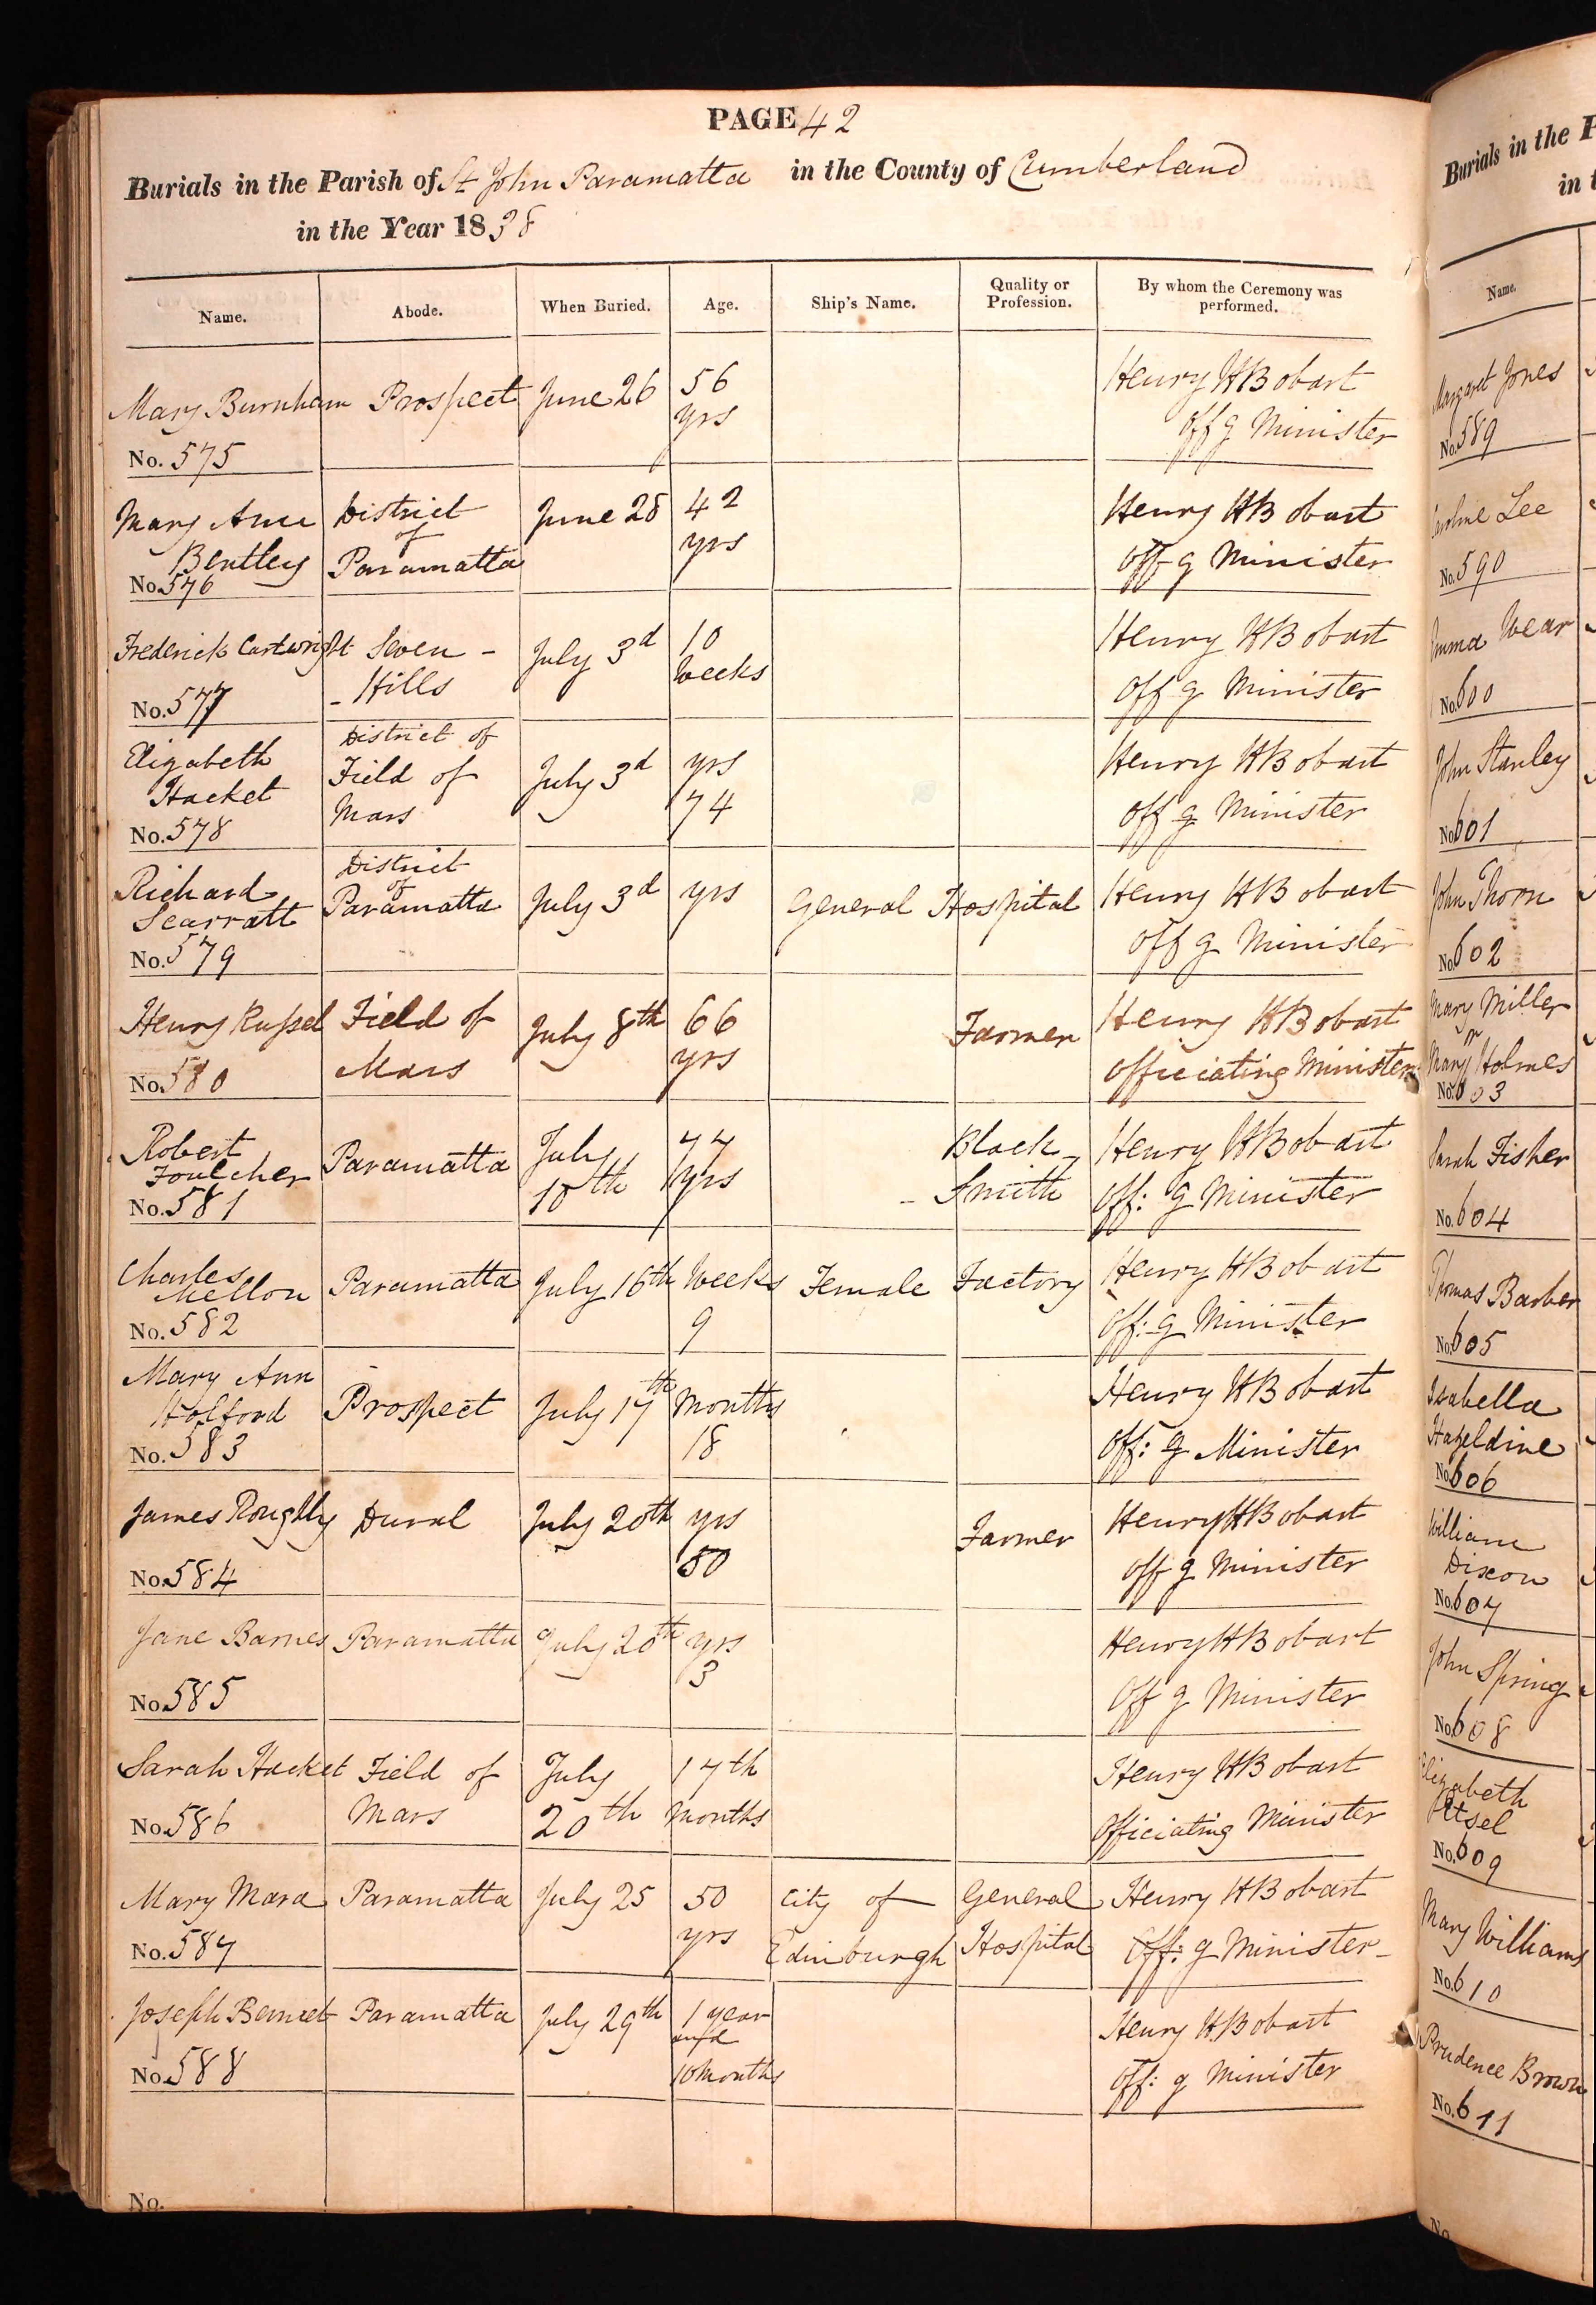 PAGE 42
Burials in the Parish of St John Paramatta in the County of Cumberland
in the Year 1838
Name. Abode. When Buried. Age. Ship's Name. Quality or Profession. By whom the Ceremony was performed.
Mary Burnham Prospect June 26 56 Henry H Bobart
yrs offg Minister
No. 575
Mary Ann District June 28 42 Henry H Bobart
of yrs
Bentley Paramatta offg Minister
No. 576
Frederick Cartwright Seven - July 3d 10 Henry H Bobart
- Hills weeks offg Minister
No. 577
District of
Elizabeth Field of July 3d yrs Henry H Bobart
Hacket Mars 74 offg Minister
No. 578
District
of
Richard Paramatta July 3d yrs General Hospital Henry H Bobart
Scarratt offg Minister
No. 579
Henry Russel Field of July 8th 66 Farmer Henry H Bobart
Mars yrs officiating Minister
No. 580
Robert Paramatta July 77 Black - Henry H Bobart
Foulcher 10th yrs - Smith off: g Minister
No. 581
Charles Paramatta July 16th Weeks Female Factory Henry H Bobart
Mellon 9 off: g Minister
No. 582
Mary Ann Prospect July 17th Months Henry H Bobart
Holford 18 off: g Minister
No. 583
James Roughly Dural July 20th yrs Farmer Henry H Bobart
50 offg Minister
No. 584
Jane Barnes Paramatta July 20th yrs Henry H Bobart
3 offg Minister
No. 585
Sarah Hacket Field of July 17th Henry H Bobart
Mars 20th Months Officiating Minister
No. 586
Mary Mara Paramatta July 25 50 City of General Henry H Bobart
yrs Edinburgh Hospital Off: g Minister -
No. 587
Joseph Bennet Paramatta July 29th 1 year Henry H Bobart
and
10 months off: g Minister
No. 588
No.
Burials in the P
in t
Name.
Margaret Jones
No. 589
Caroline Lee
No. 590
Emma Wear
No. 600
John Stanley
No. 601
John Thorn
No. 602
Mary Miller
or
Mary Holmes
No. 603
Sarah Fisher
No. 604
Thomas Barber
No. 605
Isabella
Hazeldine
No. 606
William
Dixon
No. 607
John Spring
No. 608
Elizabeth
No. 609
Mary Williams
No. 610
Prudence Brown
No. 611
No